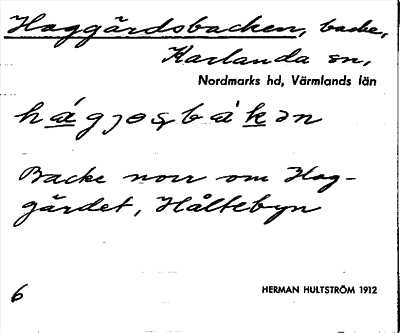 Haggärdsbacken, backe,
Karlanda sn,
Nordmarks hd, Värmlands län
Backe norr om Hag-
gärdet, Håltebyn
6
HERMAN HULTSTRÖM 1912